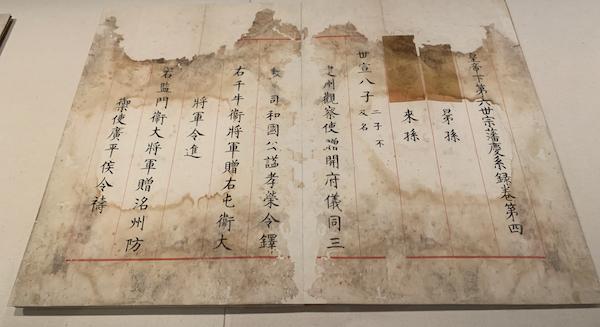 皇帝下第六世宗藩慶系録卷第四
晜孫
來孫
世宣八子二子不及名
州觀察使贈開府儀同三
司和國公謚孝榮令鐸
右千牛衛將軍贈右屯衛大
將軍令進
右監門衛大將軍贈洺州防
禦使廣平侯令禱